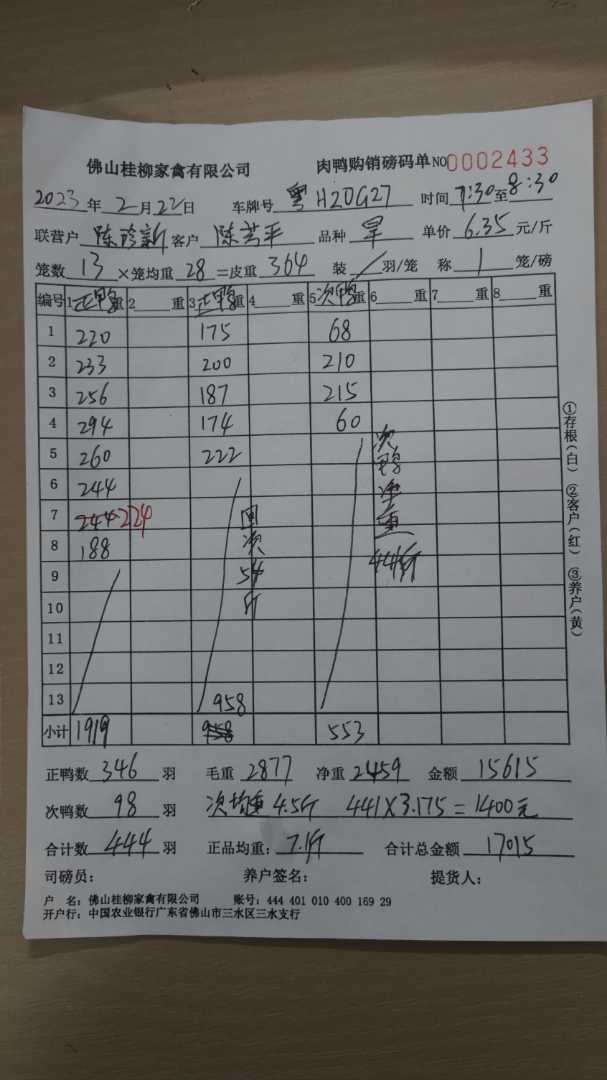 佛山桂柳家禽有限公司 肉鸭购销磅码单 NO 0002433
2023年2月22日 车牌号 粤H20G27 时间 7:30至8:30
联营户 陈珍新 客户 陈 平 品种 旱 单价 6.35元/斤
笼数 13 ×笼均重 28 =皮重 364 装 / 羽/笼 称 1 笼/磅
编号 1正鸭重 2 重 3正鸭重 4 重 5次鸭重 6 重 7 重 8 重
1 220 175 68
2 233 200 210
3 256 187 215
4 294 174 60
5 260 222
6 244
7 244 224
8 188
9
10
11
12
13 958
小计 1919 958 553
次54斤
次鸭净重441斤
①存根(白) ②客户(红) ③养户(黄)
正鸭数 346 羽 毛重 2877 净重 2459 金额 15615
次鸭数 98 羽 次均重 4.5斤 441×3.175=1400元
合计数 444 羽 正品均重: 7.1斤 合计总金额 17015
司磅员: 养户签名: 提货人:
户 名: 佛山桂柳家禽有限公司 账号: 444 401 010 400 169 29
开户行: 中国农业银行广东省佛山市三水区三水支行